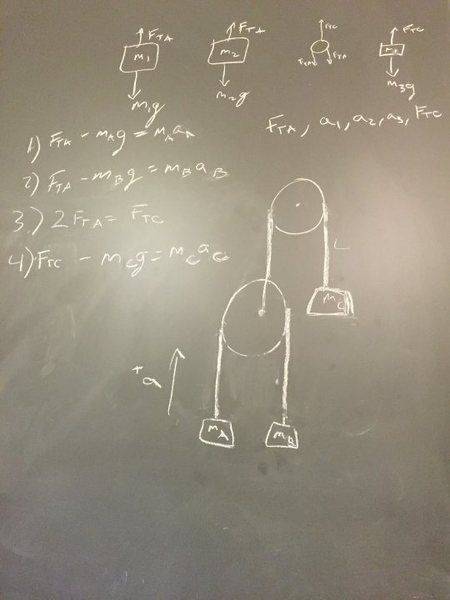 F_TA F_TA F_TC F_TC
m₁ m₂ F_TA F_TA
m₁g m₂g m₃g
F_TA, a₁, a₂, a₃, F_TC
1) F_TA - m_Ag = m_Aa_A
2) F_TA - m_Bg = m_Ba_B
3.) 2F_TA = F_TC
4) F_TC - m_Cg = m_Ca_C
L
m_C
+a
m_A m_B